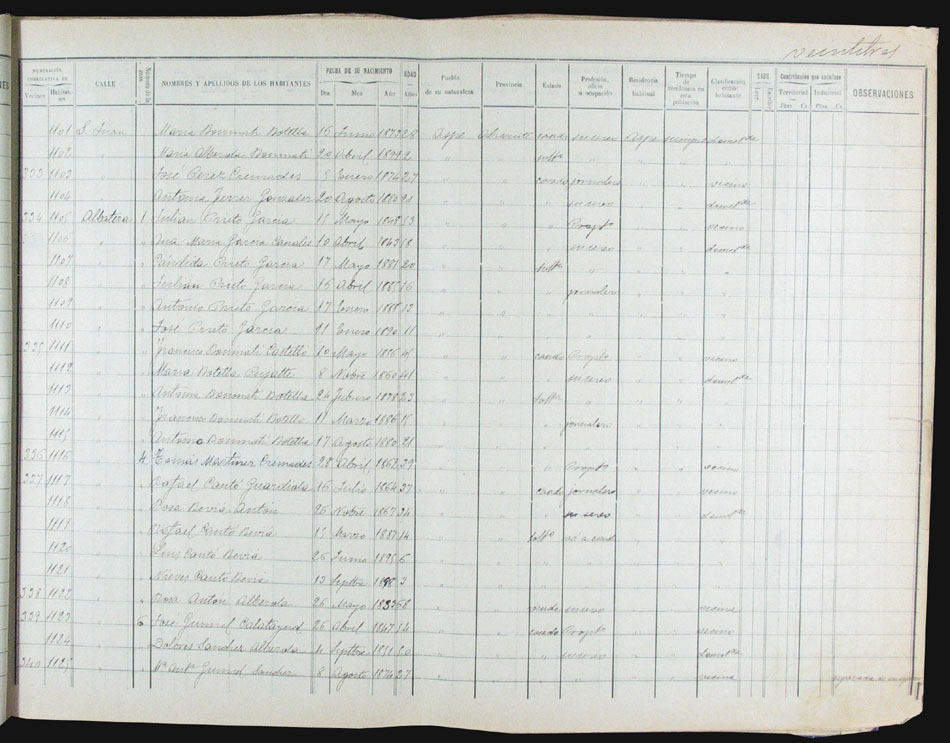 veintitres
NUMERACIÓN CORRELATIVA DE
Vecinos Habitantes
CALLE
NOMBRES Y APELLIDOS DE LOS HABITANTES
FECHA DE SU NACIMIENTO
Día Mes Año
EDAD
Años
Pueblo de su naturaleza
Provincia
Estado
Profesión, oficio ú ocupación
Residencia habitual
Tiempo de residencia en esta población
Clasificación como habitante
SABE
Leer Escribir
Contribución que satisface
Territorial Ptas. Cs.
Industrial Ptas. Cs.
OBSERVACIONES
1101 S. Juan Maria Bonmati Botella 16 Junio 1873 28 Aspe Alicante casada su casa Aspe siempre domctda
1102 " " Maria Alberola Bonmati 20 Abril 1899 2 " " solta
333 1103 " " José Perez Cremades 5 Enero 1874 27 " " casado jornalero " " vecino
1104 " " Antonia Ferrer Gonzalez 20 Agosto 1880 21 " " " su sexo " " domctda
334 1105 Albatera 1 Julian Prieto Garcia 15 Mayo 1848 53 " " " Propto " " vecino
1106 " " Ana Maria Garcia Canales 10 Abril 1843 58 " " " su sexo " " domctda
1107 " " Cándida Prieto Garcia 17 Mayo 1881 20 " " solta " " " "
1108 " " Julian Prieto Garcia 16 Abril 1885 16 " " " jornalero " "
1109 " " Antonio Prieto Garcia 17 Enero 1888 13 " "
1110 " " José Prieto Garcia 11 Enero 1890 11 " "
335 1111 " " Francisco Bonmati Castelló 10 Mayo 1856 45 " " casado Propto " " vecino
1112 " " Maria Botella 8 Nobre 1860 41 " " " su sexo " " domctda
1113 " " Antonia Bonmati Botella 24 Febrero 1878 23 " " solta " " "
1114 " " Francisco Bonmati Botella 11 Marzo 1886 15 " " " jornalero "
1115 " " Antonio Bonmatí Botella 17 Agosto 1880 21 " "
336 1116 " 4 Tomás Martinez Cremades 28 Abril 1862 39 " " " Propto " " vecino
337 1117 " " Rafael Cantó Guardiola 16 Julio 1864 37 " " casado jornalero " " vecino
1118 " " Rosa Beviá Antón 26 Nobre 1867 34 " " " su sexo " " domctda
1119 " " Rafael Cantó Beviá 15 Marzo 1887 14 " " solto
1120 " " Luis Cantó Beviá 26 Junio 1895 6 " "
1121 " " Nieves Cantó Beviá 13 Septbre 1898 3 " "
338 1122 " " Rosa Antón Alberola 26 Mayo 1833 68 " " viuda su sexo " " vecina
339 1123 " 6 José Gumiel Calatayud 26 Abril 1847 54 " " casado Propto " " vecino
1124 " " Dolores Sanchez Alberola 4 Septbre 1851 50 " " " su sexo " " domctda
340 1125 " " Ma Anta Gumiel Sanchez 8 Agosto 1874 27 " " " " " vecina